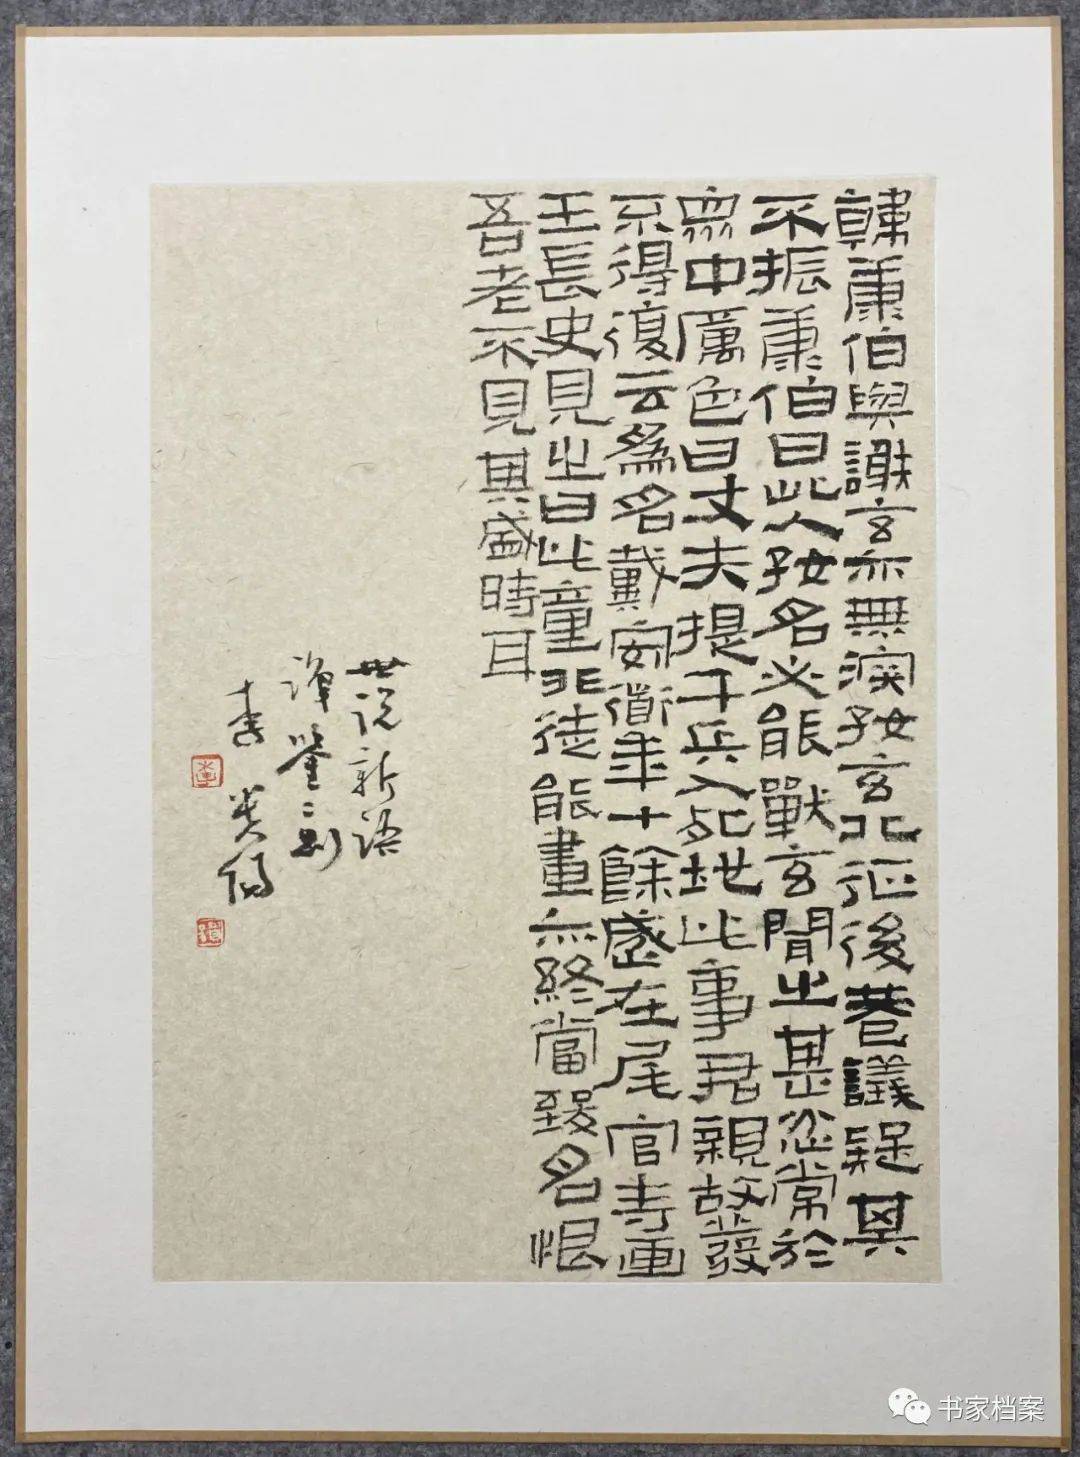 韓康伯與謝玄亦無深好玄北征後巷議疑其
不振康伯曰此人好名必能戰玄聞之甚忿常於
眾中厲色曰丈夫提千兵入死地以事君親故發
不得復云為名戴安道年十餘歲在瓦官寺畫
王長史見之曰此童非徒能畫亦終當致名恨
吾老不見其盛時耳
世說新語
識鑒二則
李
书家档案